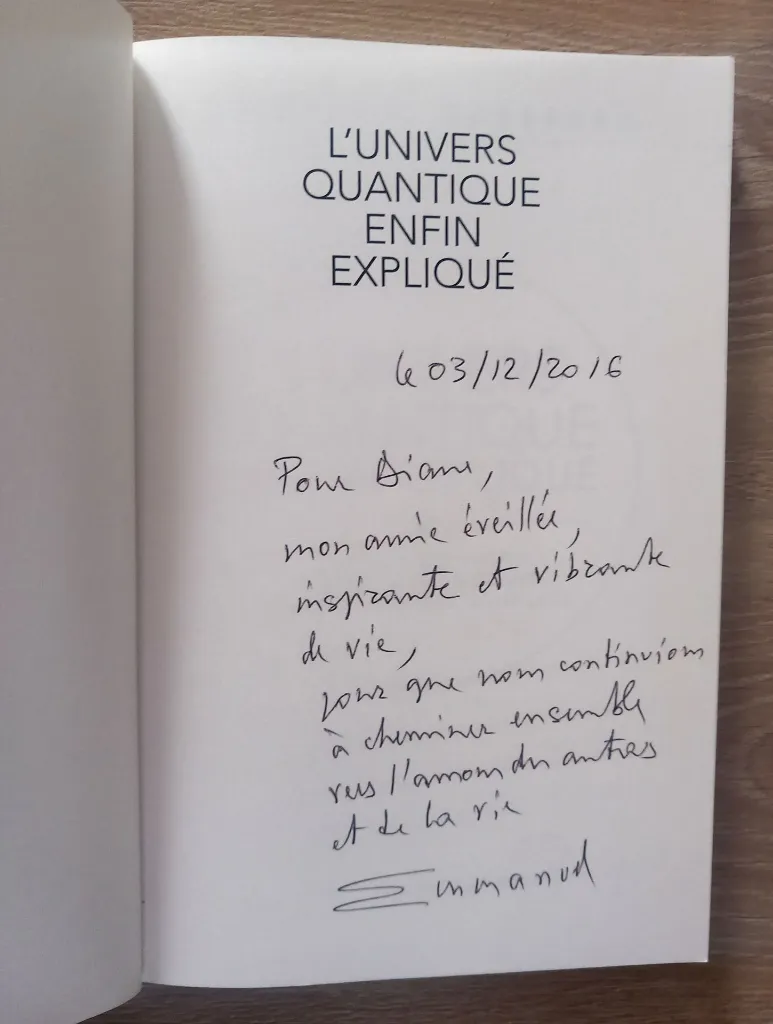 L'UNIVERS
QUANTIQUE
ENFIN
EXPLIQUÉ
le 03/12/2016
Pour Diane,
mon amie éveillée,
inspirante et vibrante
de vie,
pour que nous continuions
à cheminer ensemble
vers l'amour des autres
et de la vie
Emmanuel